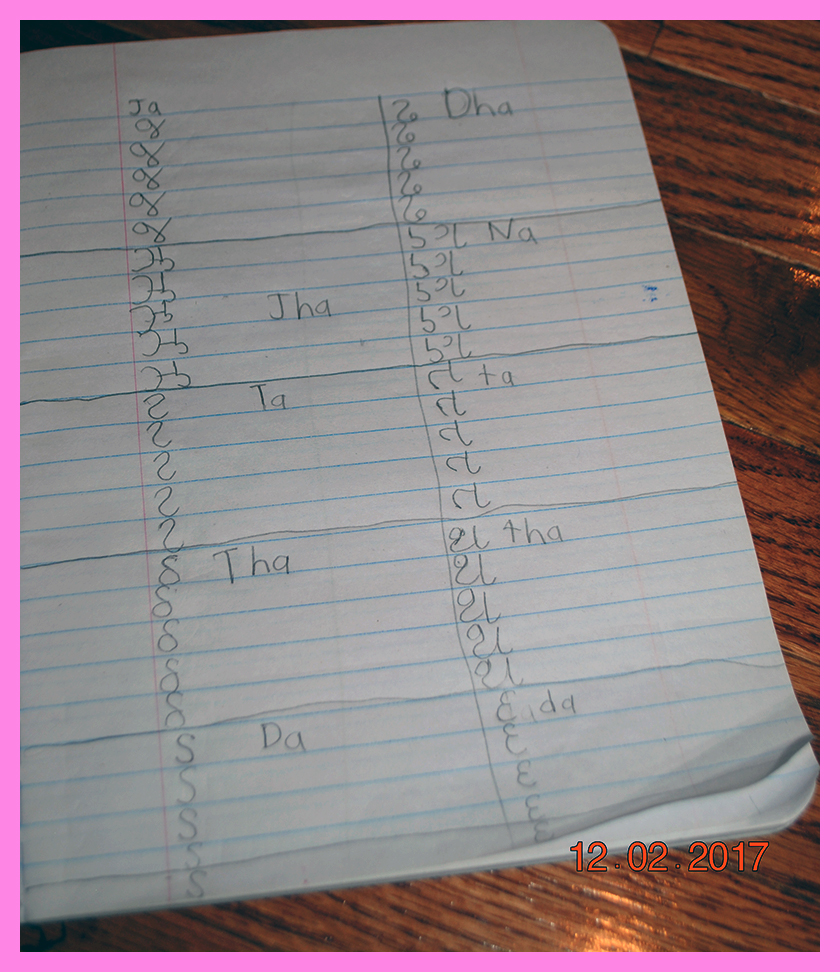 Ja
જ
જ
જ
જ
જ
ઝ
ઝ
ઝ Jha
ઝ
ઝ
ટ Ta
ટ
ટ
ટ
ટ
ઠ Tha
ઠ
ઠ
ઠ
ઠ
ડ Da
ડ
ડ
ડ
ડ
ઢ Dha
ઢ
ઢ
ઢ
ઢ
ણ Na
ણ
ણ
ણ
ણ
ત ta
ત
ત
ત
ત
થ tha
થ
થ
થ
થ
દ da
દ
દ
દ
દ
12.02.2017